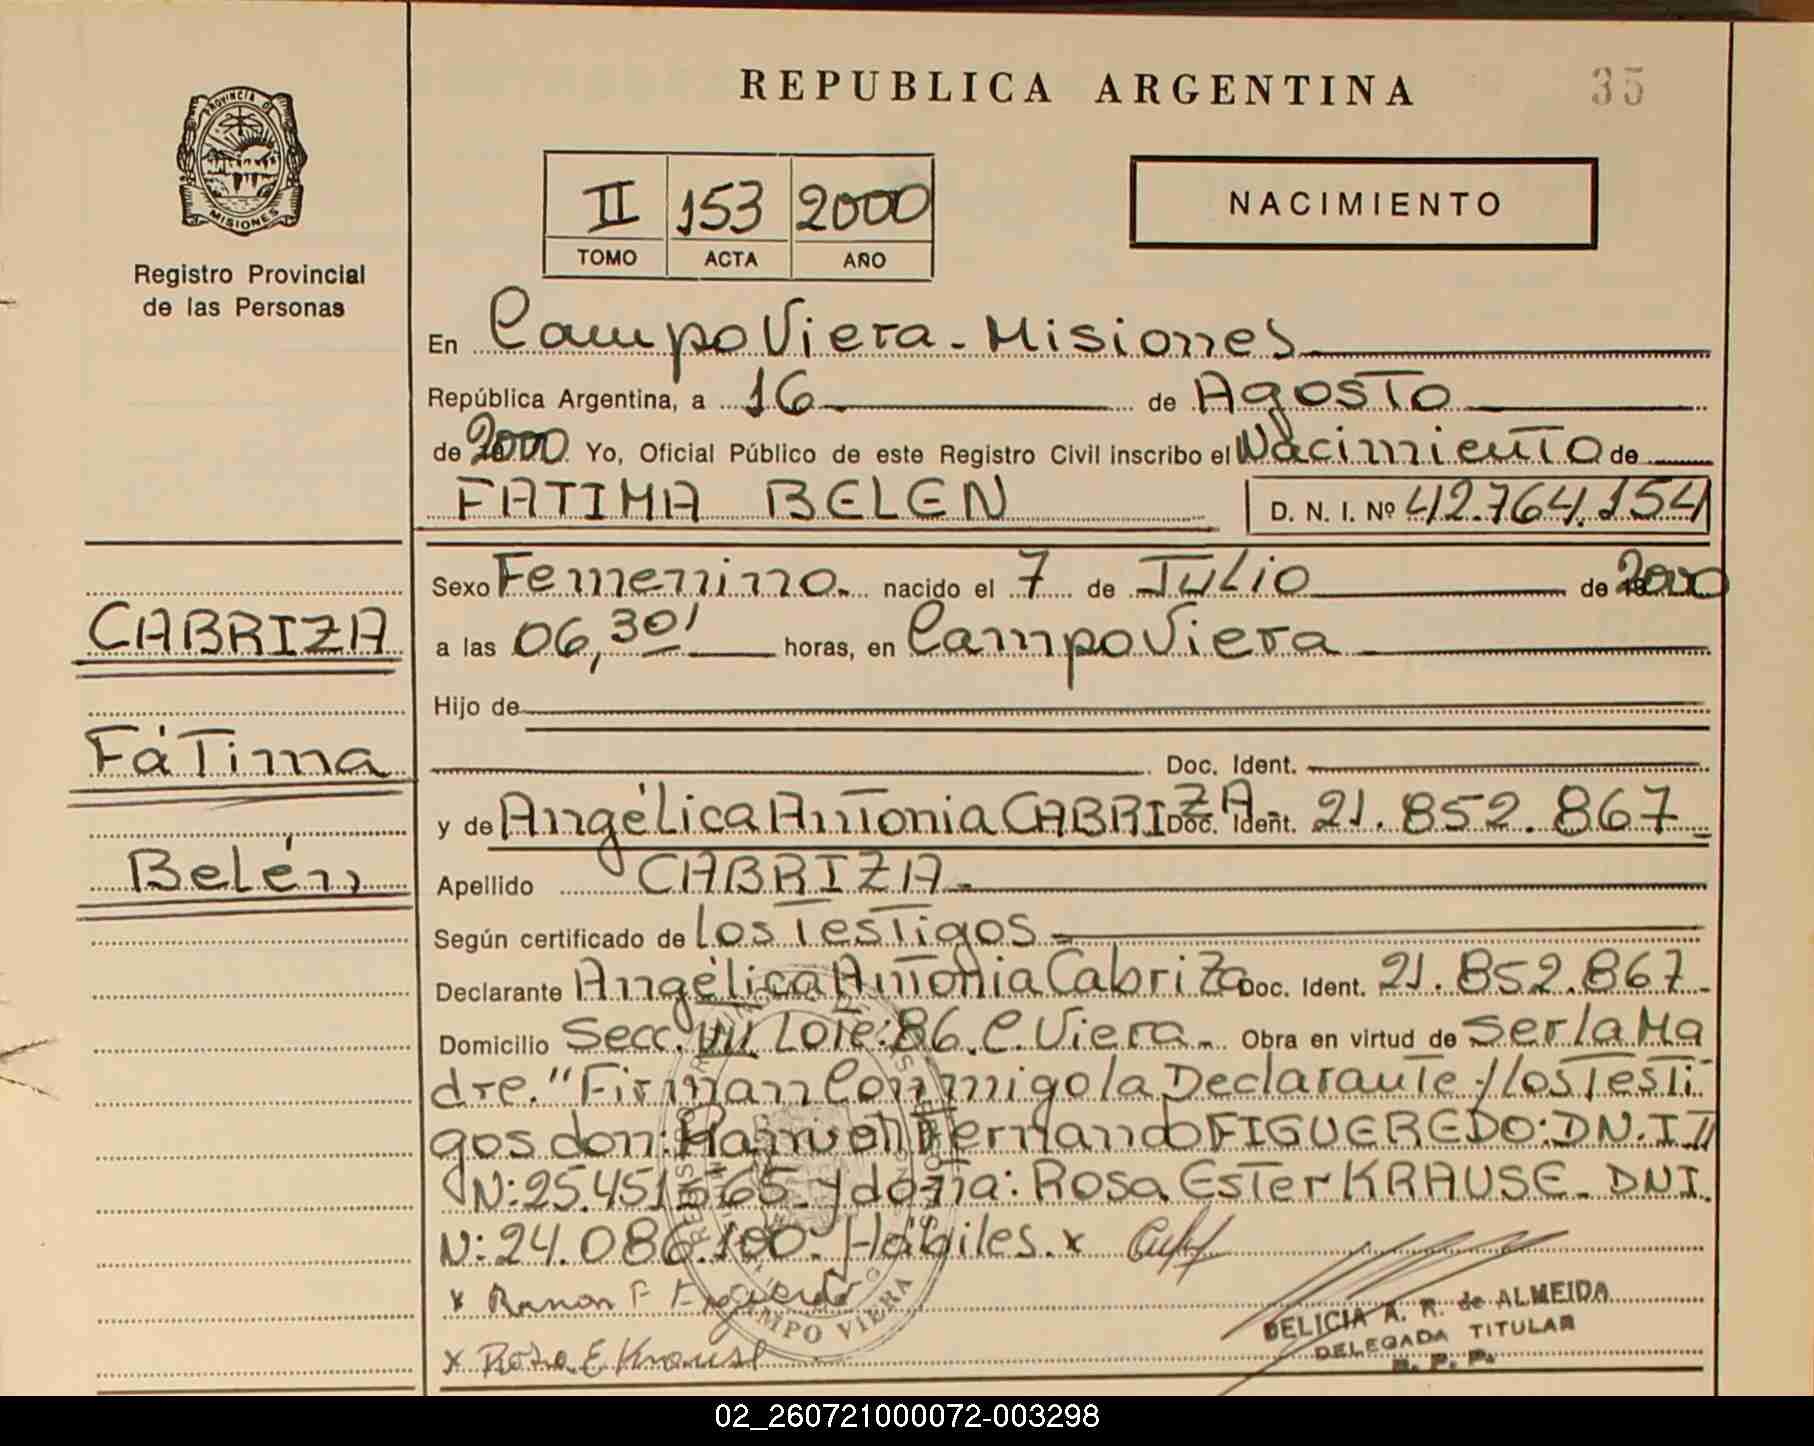 REPUBLICA ARGENTINA
35
PROVINCIA DE
MISIONES
Registro Provincial
de las Personas
II 153 2000
TOMO ACTA AÑO
NACIMIENTO
En Campo Viera - Misiones
República Argentina, a 16 de Agosto
de 2000 Yo, Oficial Público de este Registro Civil inscribo el Nacimiento de
FATIMA BELEN D. N. I. Nº 42.764.154
CABRIZA
Fátima
Belén
Sexo Femenino. nacido el 7 de Julio de 2000
a las 06,30' horas, en Campo Viera
Hijo de
Doc. Ident.
y de Angélica Antonia CABRIZA Doc. Ident. 21.852.867
Apellido CABRIZA
Según certificado de los Testigos
Declarante Angélica Antonia Cabriza Doc. Ident. 21.852.867
Domicilio Secc. VII Lote: 86. C. Viera. Obra en virtud de ser la Ma
dre." Firman Conmigo la Declarante y los Testi
gos don: Ramon Fernando FIGUEREDO: D.N.I
N: 25.451.565 y doña: Rosa Ester KRAUSE. DNI.
N: 24.086.100. Hábiles. x
x Ramon F Figueredo
x Rosa E Krause
CAMPO VIERA
DELICIA A. R. de ALMEIDA
DELEGADA TITULAR
R. P. P.
02_260721000072-003298